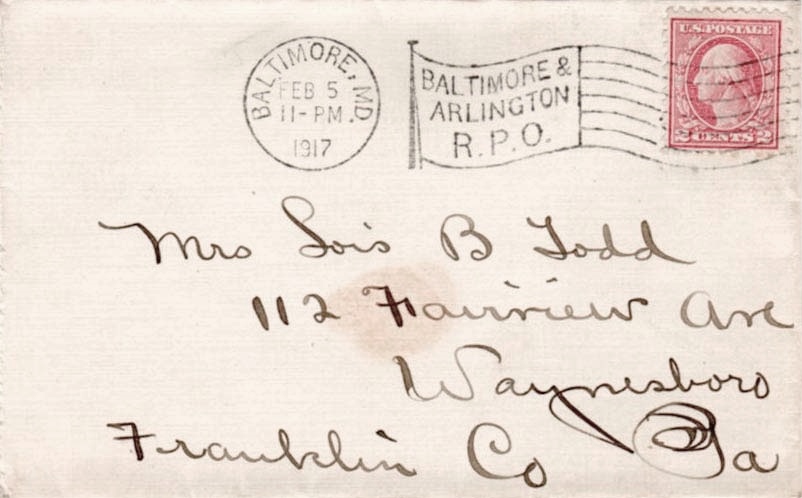 BALTIMORE, MD.
FEB 5
11-PM
1917
BALTIMORE &
ARLINGTON
R.P.O.
U.S. POSTAGE
2 CENTS 2
Mrs Lois B Todd
112 Fairview Ave
Waynesboro
Franklin Co Pa